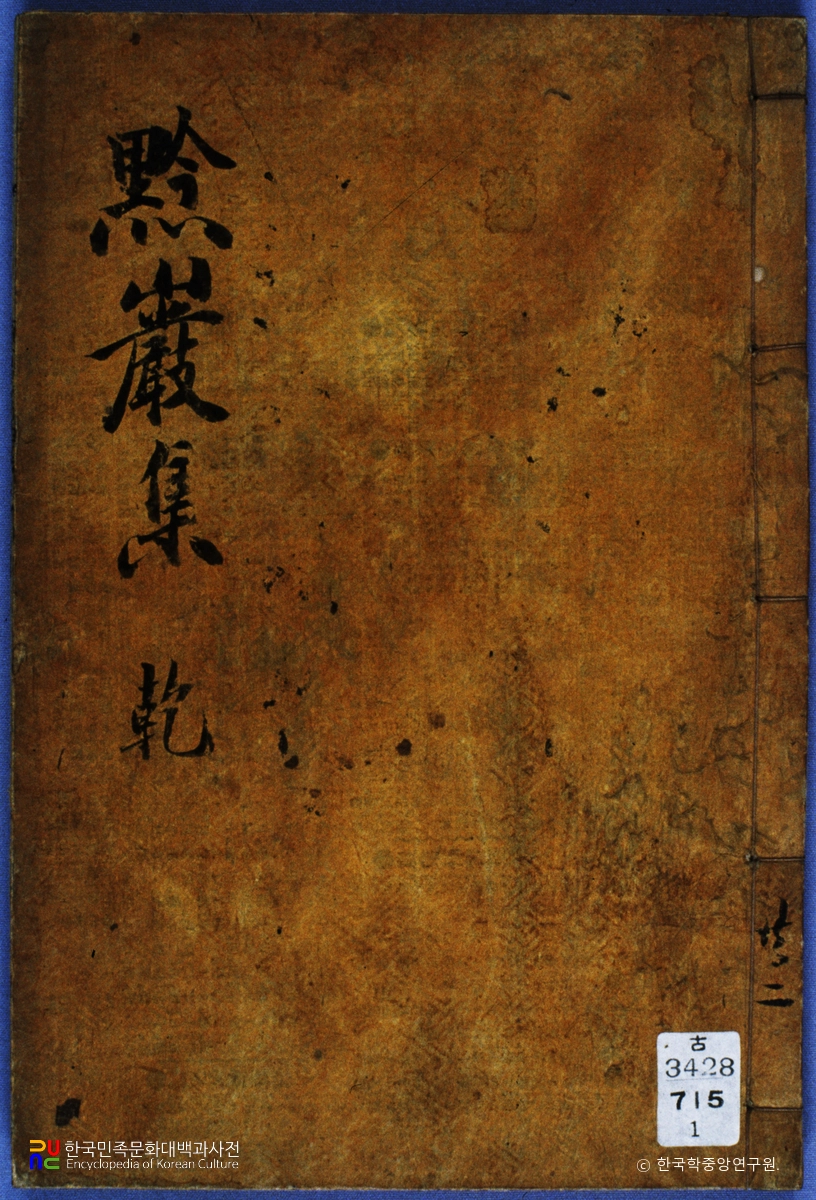 黔巖集 乾
共二
古
3428
715
1
한국민족문화대백과사전
Encyclopedia of Korean Culture
© 한국학중앙연구원.